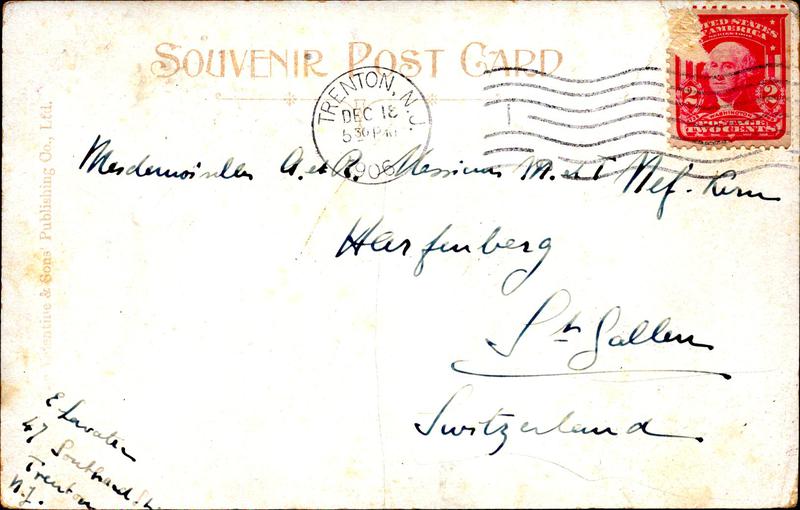 SOUVENIR POST CARD
UNITED STATES
OF AMERICA
WASHINGTON
2 2
POSTAGE
TWO CENTS
TRENTON, N.J.
DEC 18
5 30 PM
1906
Mesdemoiselles A. et R. Messieurs M. et Nef-Kern
Harfenberg
St Gallen
Switzerland
E Lavater
47
Trenton
N.J.
Valentine & Sons' Publishing Co., Ltd.